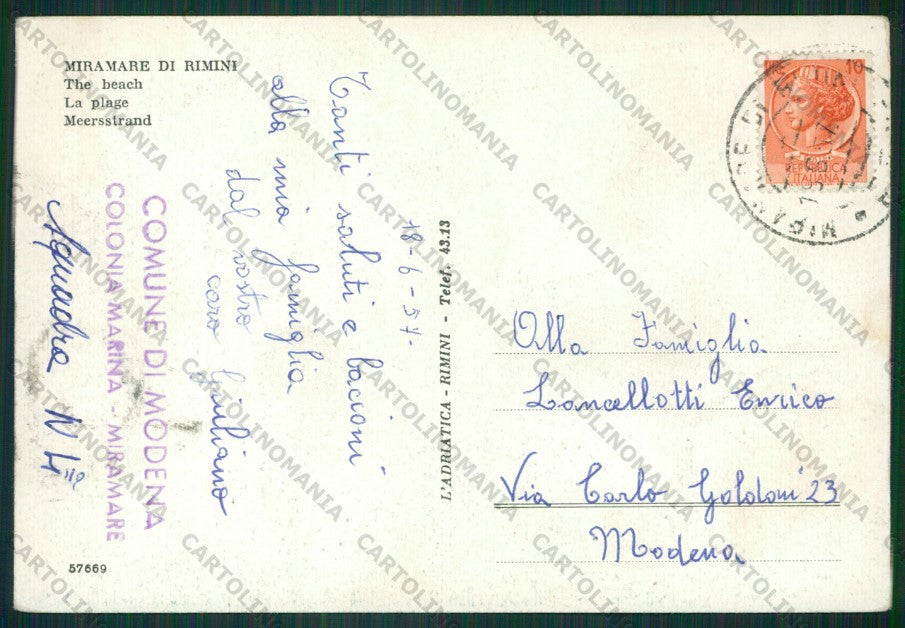 MIRAMARE DI RIMINI
The beach
La plage
Meersstrand
18-6-57-
Tanti saluti e bacioni
alla mia famiglia
dal vostro
caro Giuliano
COMUNE DI MODENA
COLONIA MARINA - MIRAMARE
Squadra N 4
57669
L'ADRIATICA - RIMINI - Telef. 43.13
10
REPUBBLICA
ITALIANA
Alla Famiglia
Lancellotti Enrico
Via Carlo Goldoni 23
Modena
CARTOLINOMANIA